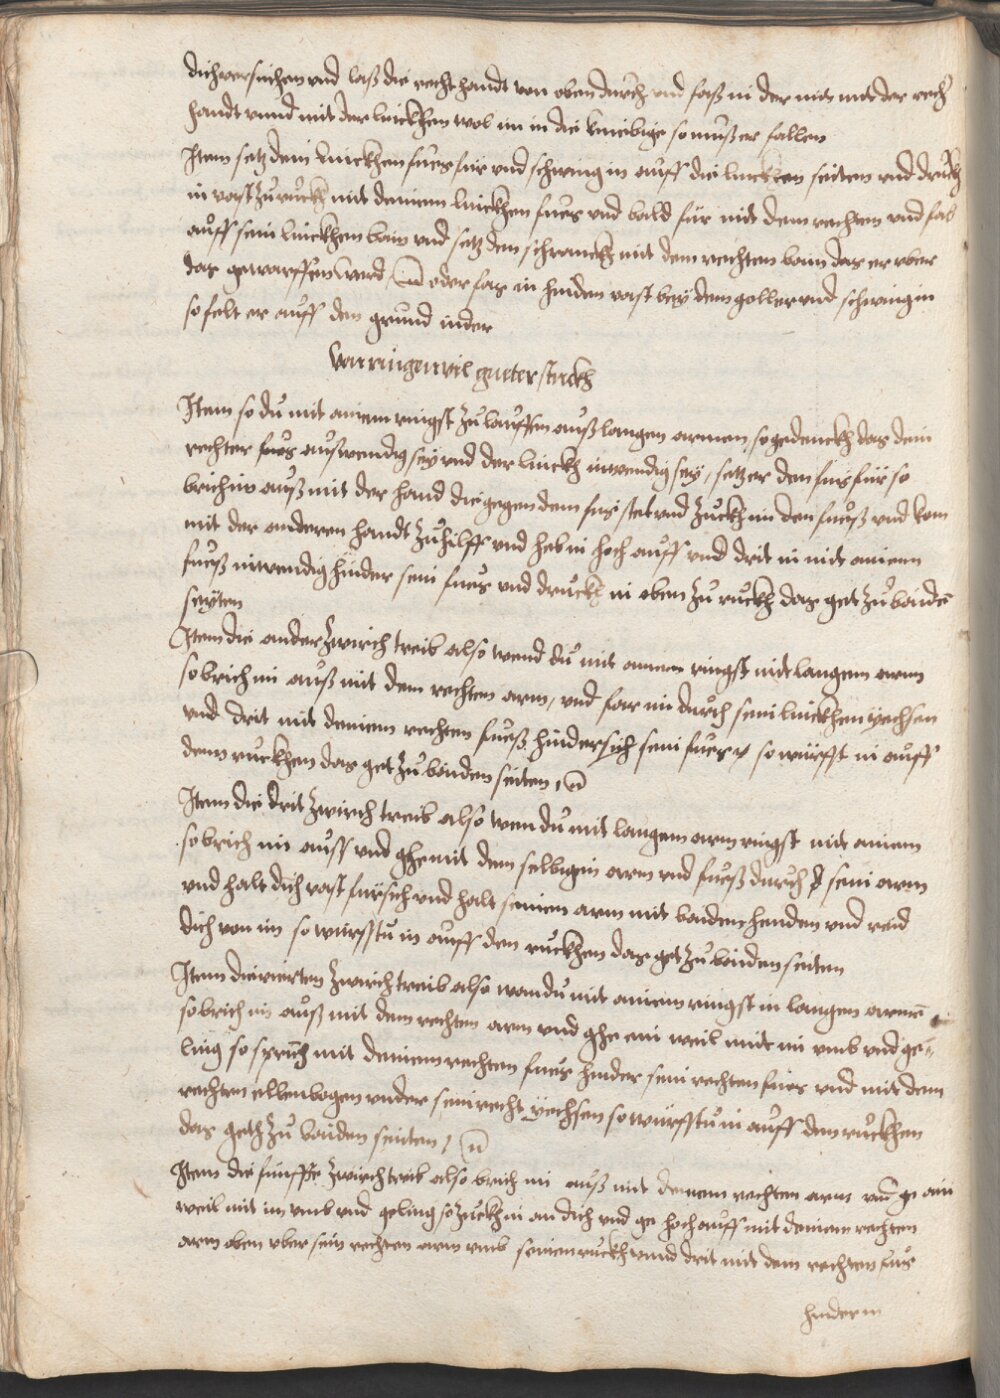 dich versuchen vnd laß die recht handt von oben durch vnd faß in der mit mit der rech
handt vnnd mit der linckhen wol im in die kniebüge so muß er fallen
Item setz dein linckhen fues für vnd schwing in auff die linckten seiten vnd druckh
in vast zu ruckh mit deinem linckhen fues vnd bald für mit dem rechten vnd fas
auff sein linckhen bain vnd setz den schranckh mit dem rechten bain das er vber
das geworffen werd oder fas in hinden vast bey dem goller vnd schwing in
so felt er auff den grund nider
Von ringen vil gueter stuckh
Item so du mit ainem ringst zu lauffen auß langen armen so gedenckh das dein
rechter fues außwendig sey vnd der linckh inwendig sey, setz er den fuß für so
brich im auß mit der hand die gegen dem fus stet vnd zuckh im den fueß vnd kom
mit der anderen handt zu hilff vnd heb in hoch auff vnd drit in mit ainem
fueß inwendig hinder sein fues vnd druckh in oben zu ruckh das get zu baidē
seyten
Item die ander zwirch treib also wend du mit ainem ringst mit langem arm
so brich im auß mit dem rechten arm, vnd far im durch sein linckhen yechsen
vnd drit mit deinem rechten fueß hindersich sein fues so würfft in auff
dem ruckhen das get zu baiden seiten
Item die drit zwirch treib also wen du mit langem arm ringst mit ainem
so brich im auss vnd ghe mit dem selbigen arm vnd fueß durch sein arm
vnd halt dich vast fürsich vnd halt seinem arm mit baiden henden vnd reid
dich von im so würfstu in auff den ruckhen das get zu baiden seiten
Item die vierten zwirch treib also wan du mit ainem ringst in langen armē
so brich im auß mit dem rechten arm vnd ghe ein weil mit im vmb vnd ge=
ling so sprich mit deinem rechten fues hinder sein rechten fues vnd mit dem
rechten elbenbogen vnder sein recht yechsen so würfstu in auff den ruckhen
das geth zu baiden seiten
Item die funffte zwirch treib also brich im auß mit deinem rechten arm vnd ge ain
weil mit im vmb vnd geling so zuckh in an dich vnd ge hoch auff mit deinem rechten
arm oben vber sein rechten arm vmb seinen ruckh vnnd drit mit dem rechten fus
hinder in